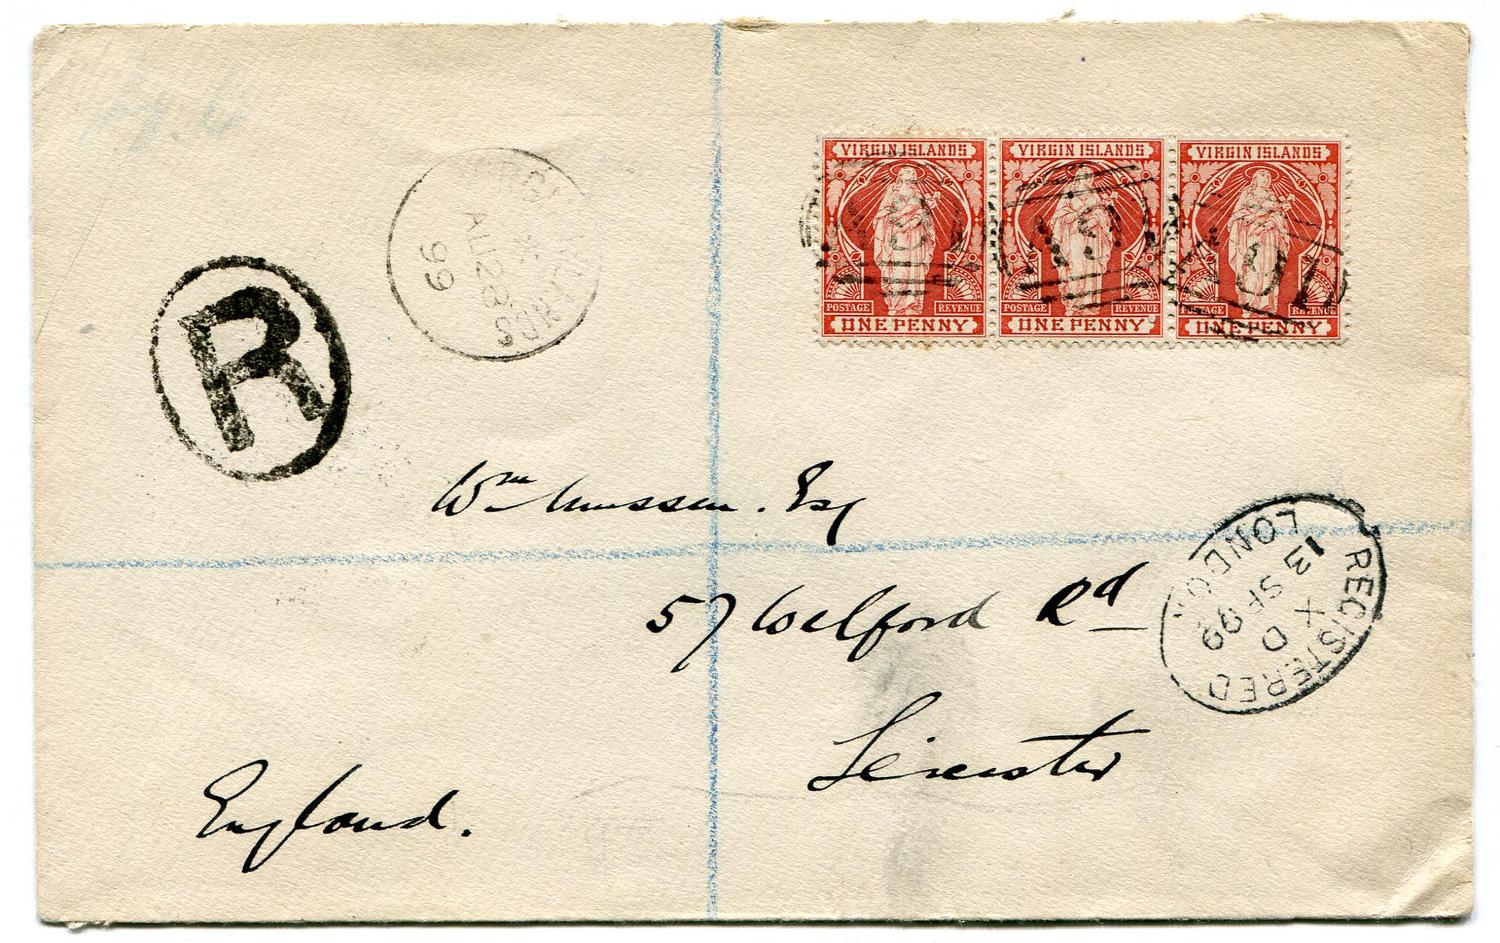 VIRGIN ISLANDS VIRGIN ISLANDS VIRGIN ISLANDS
A91 A91
POSTAGE REVENUE POSTAGE REVENUE POSTAGE REVENUE
ONE PENNY ONE PENNY ONE PENNY
AU 28
99
R
Wm Esq
57 Welford Rd
Leicester
England.
REGISTERED
X D
13 SP 99
LONDON